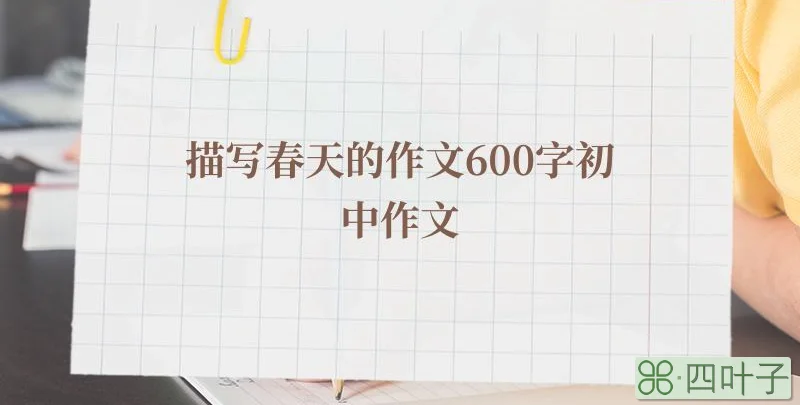 描写春天的作文600字初
中作文
四叶子